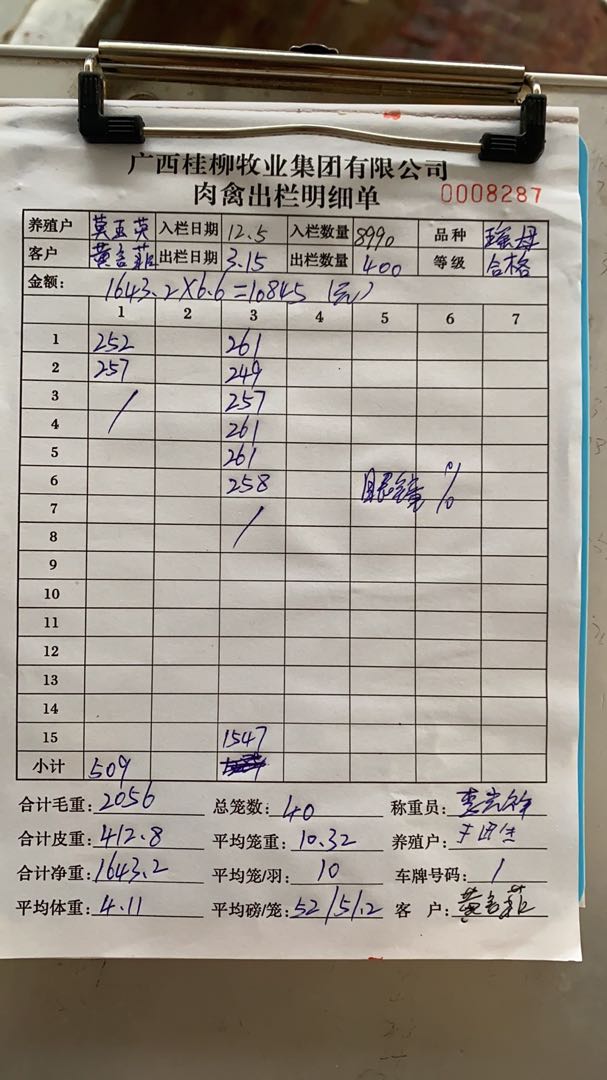 广西桂柳牧业集团有限公司
肉禽出栏明细单 0008287
养殖户 莫亚英 入栏日期 12.5 入栏数量 8990 品种 瑶母
客户 黄言菲 出栏日期 3.15 出栏数量 400 等级 合格
金额: 1643.2×6.6=10845(元)
1 2 3 4 5 6 7
1 252 261
2 257 249
3 / 257
4 261
5 261
6 258 眼镜 %
7 /
8
9
10
11
12
13
14
15 1547
小计 509
合计毛重: 2056 总笼数: 40 称重员:
合计皮重: 412.8 平均笼重: 10.32 养殖户:
合计净重: 1643.2 平均笼/羽: 10 车牌号码: /
平均体重: 4.11 平均磅/笼: 52/51.2 客户: 黄言菲